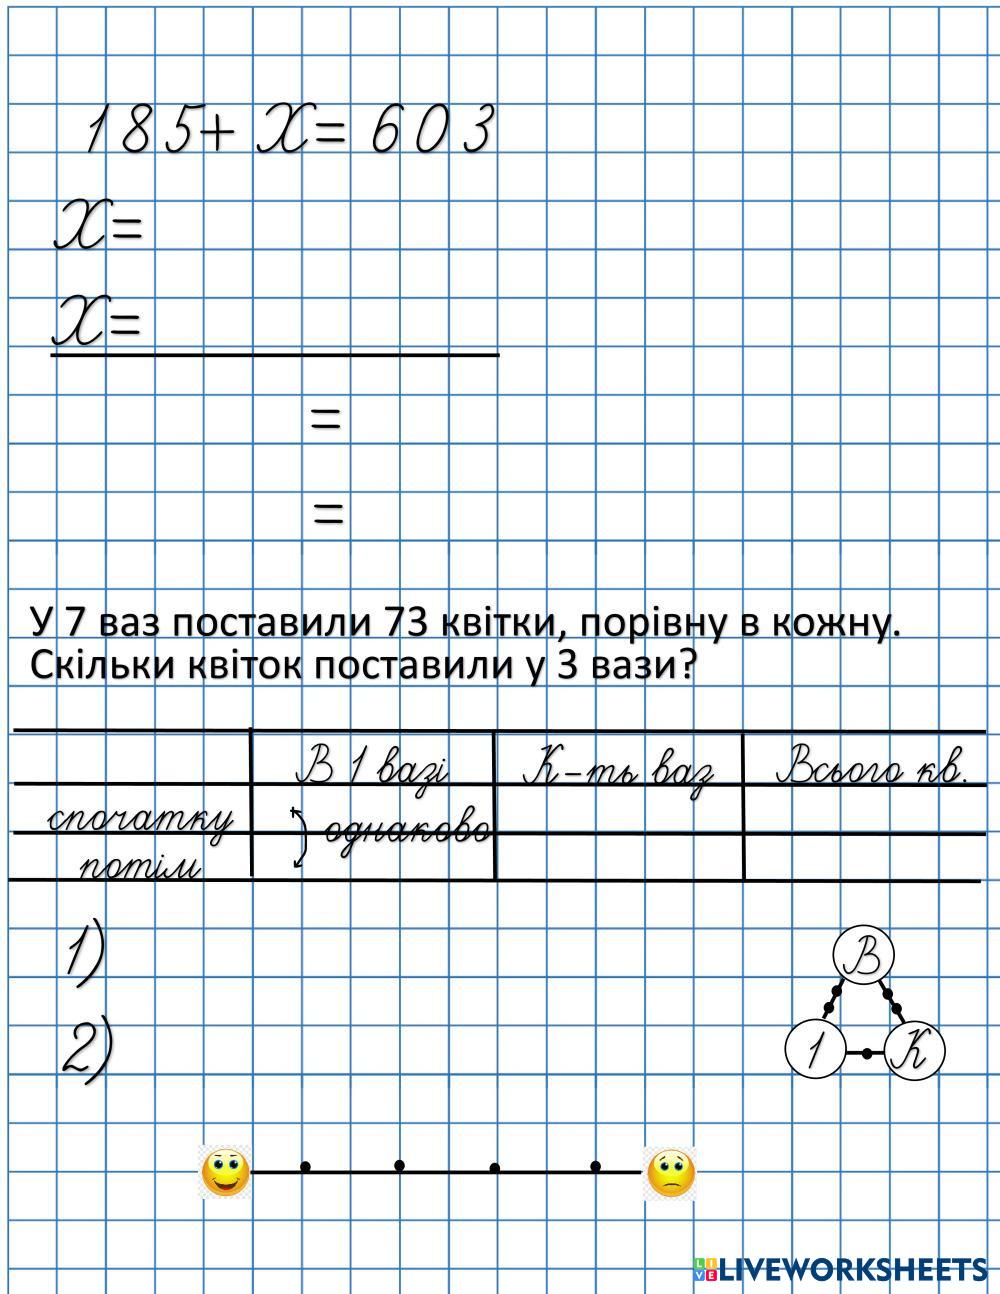 185+ X= 603
X=
X=
=
=
У 7 ваз поставили 73 квітки, порівну в кожну.
Скільки квіток поставили у 3 вази?
В 1 вазі К-ть ваз Всього кв.
спочатку однаково
потім
1)
В
2)
1 К
LIVEWORKSHEETS